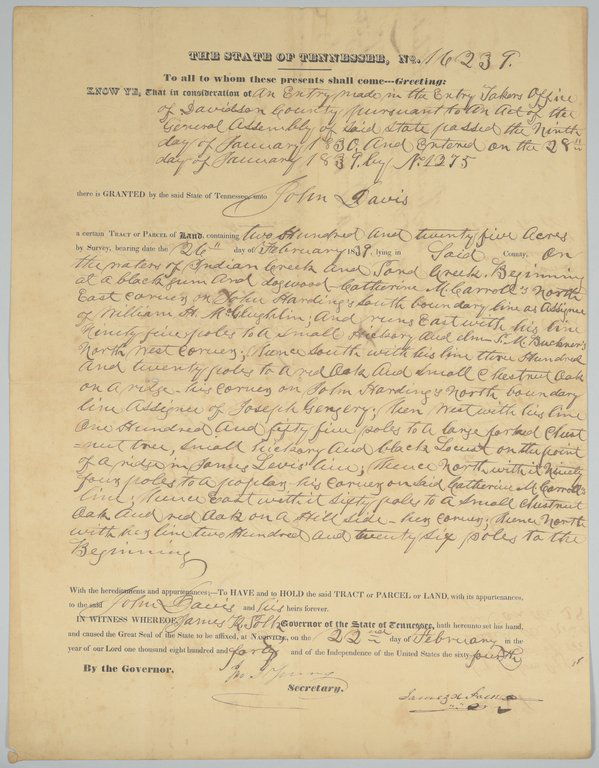 THE STATE OF TENNESSEE, No. 16239.
To all to whom these presents shall come---Greeting:
KNOW YE, That in consideration of An Entry made in the Entry Takers Office
of Davidson County pursuant to An Act of the
General Assembly of Said State passed the Ninth
day of January 1830, And Entered on the 28th
day of January 1839. by No 1275
there is GRANTED by the said State of Tennessee, unto John Davis
a certain TRACT or PARCEL of Land, containing two Hundred And twenty five Acres
by Survey, bearing date the 26th day of February 1839, lying in Said County. On
the waters of Indian Creek And Pond Creek. Beginning
at a black gum And dogwood Catherine McCarroll's North
East corner on John Harding's South boundary line as Assignee
of William H. McLaughlin; And runs East with his line
Ninety five poles to a Small Hickory And Elm S. M. Buckner's
North West corner; thence South with his line three Hundred
And twenty poles to a red Oak And Small Chestnut Oak
on a ridge - his corner on John Harding's North boundary
line Assignee of Joseph; then West with his line
One Hundred And fifty five poles to a large forked Chest
=nut tree, Small Hickory And black Locust on the point
of a ridge in James Levis' line; thence North with it Ninety
four poles to a poplar his corner on Said Catherine McCarroll's
line; thence East with it Sixty poles to a Small Chestnut
Oak And red Oak on a Hill Side - her corner; thence North
with her line two Hundred and twenty Six poles to the
Beginning
With the hereditments and appurtenances;—To HAVE and to HOLD the said TRACT or PARCEL or LAND, with its appurtenances,
to the said John Davis and his heirs forever.
IN WITNESS WHEREOF, James K. Polk Governor of the State of Tennessee, hath hereunto set his hand,
and caused the Great Seal of the State to be affixed, at NASHVILLE, on the 22nd day of February in the
year of our Lord one thousand eight hundred and forty and of the Independence of the United States the sixty fourth
By the Governor.
Jno. S. Young
Secretary.
James K. Polk